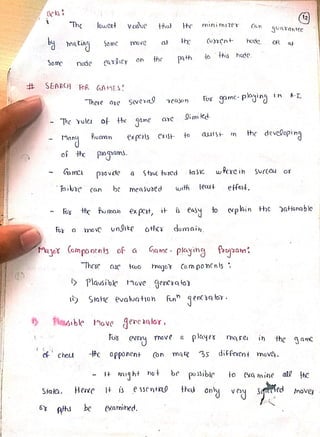 12
Beta:
The lowest value that the minimizer can guarantee
by making some move at the current node OR at
some node earlier on the path to this node.
# SEARCH FOR GAMES:
There are several reason for game-playing in A-I.
- The rules of the game are limited
- Many human experts exist to assist in the developing
of the programs.
- Games provide a structured task wherein success or
failure can be measured with least effort.
- For the human expert, it is easy to explain the rationable
for a move unlike other domain.
Major Components of a Game-playing Program:
There are two major components :
i) Plausible Move generator
ii) State evaluation Funⁿ generator.
i) Plausible Move generator.
For every move a player makes in the game
of chess the opponent can make 35 different moves.
- It might not be possible to examine all the
states. Hence it is essential that only very selected moves
or paths be examined.